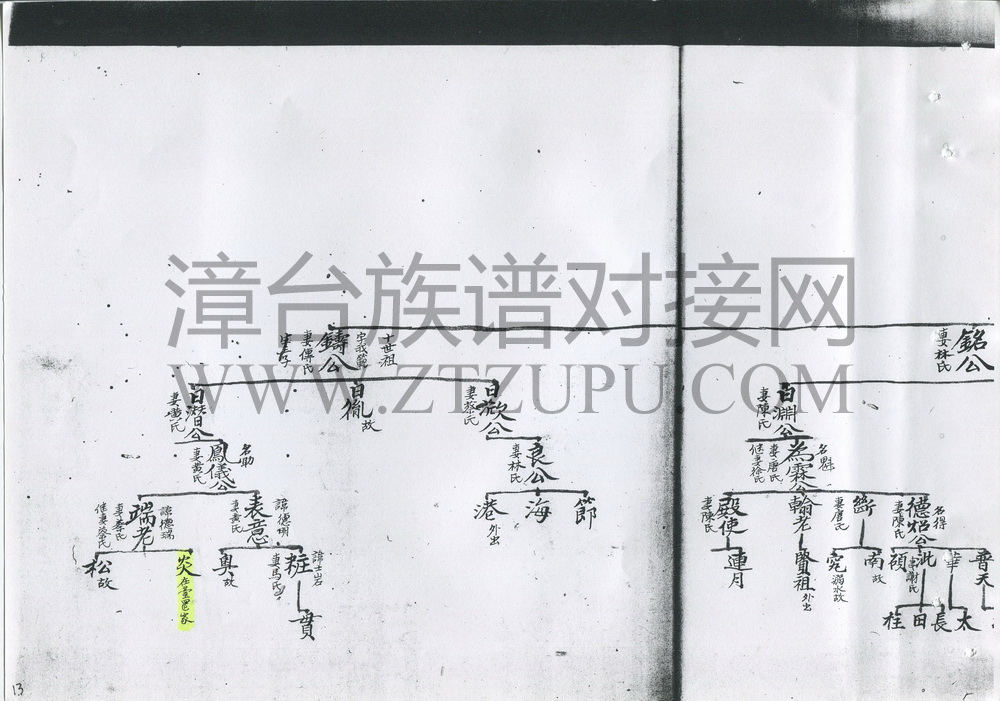 漳台族谱对接网
WWW.ZTZUPU.COM
銘公
妻林氏
十世祖
鑄公
妻傅氏
日淵公
妻陳氏
日歡公
妻蔡氏
日胤
故
日潛公
妻黄氏
名魁
為霖公
妻唐氏
继妻徐氏
良公
妻林氏
名勋
鳳儀公
妻黄氏
名得
德炤公
妻陳氏
斷
妻唐氏
翰老
殿使
妻陳氏
節
海
港
外出
諱德明
表意
妻黄氏
諱德瑞
端老
妻李氏
继妻梁氏
普天
華
沘
妻謝氏
碩
南
故
寃
溺水故
賢祖
外出
連月
諱士岩
粧
妻馬氏
奥
故
炎
在臺置家
松
故
太
長
田
柱
貫
13